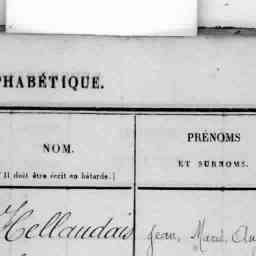 PHABÉTIQUE.
NOM.
(Il doit être écrit en bâtarde.)
PRÉNOMS
ET SURNOMS.
Hellaudais
Jean, Marie,